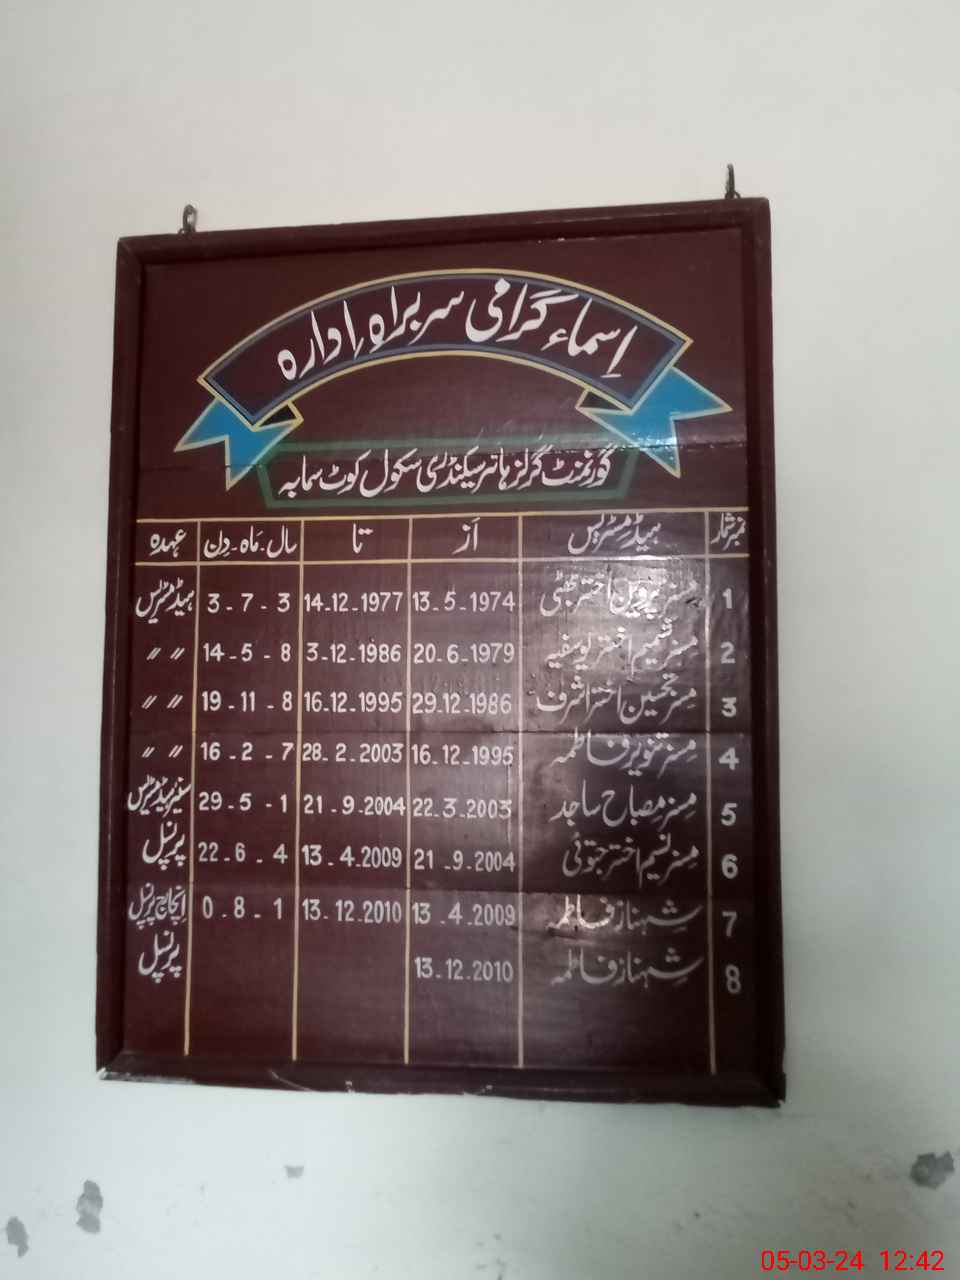 اسماء گرامی سربراہِ ادارہ
گورنمنٹ گرلز ہائر سیکنڈری سکول کوٹ سمابہ
نمبر شمار ہیڈ مسٹریس از تا سال - ماہ - دن عہدہ
1 مسز پروین اختر بھٹی 13-5-1974 14-12-1977 3 - 7 - 3 ہیڈ مسٹریس
2 مسز شمیم اختر یوسفیہ 20-6-1979 3-12-1986 14 - 5 - 8 〃 〃
3 مسز تحسین اختر اشرف 29-12-1986 16-12-1995 19 - 11 - 8 〃 〃
4 مسز تنویر فاطمہ 16-12-1995 28-2-2003 16 - 2 - 7 〃 〃
5 مسز مصباح ساجد 22-3-2003 21-9-2004 29 - 5 - 1 سنیئر ہیڈ مسٹریس
6 مسز نسیم اختر جتوئی 21-9-2004 13-4-2009 22 - 6 - 4 پرنسپل
7 شہناز فاطمہ 13-4-2009 13-12-2010 0 - 8 - 1 انچارج پرنسپل
8 شہناز فاطمہ 13-12-2010 پرنسپل
05-03-24 12:42